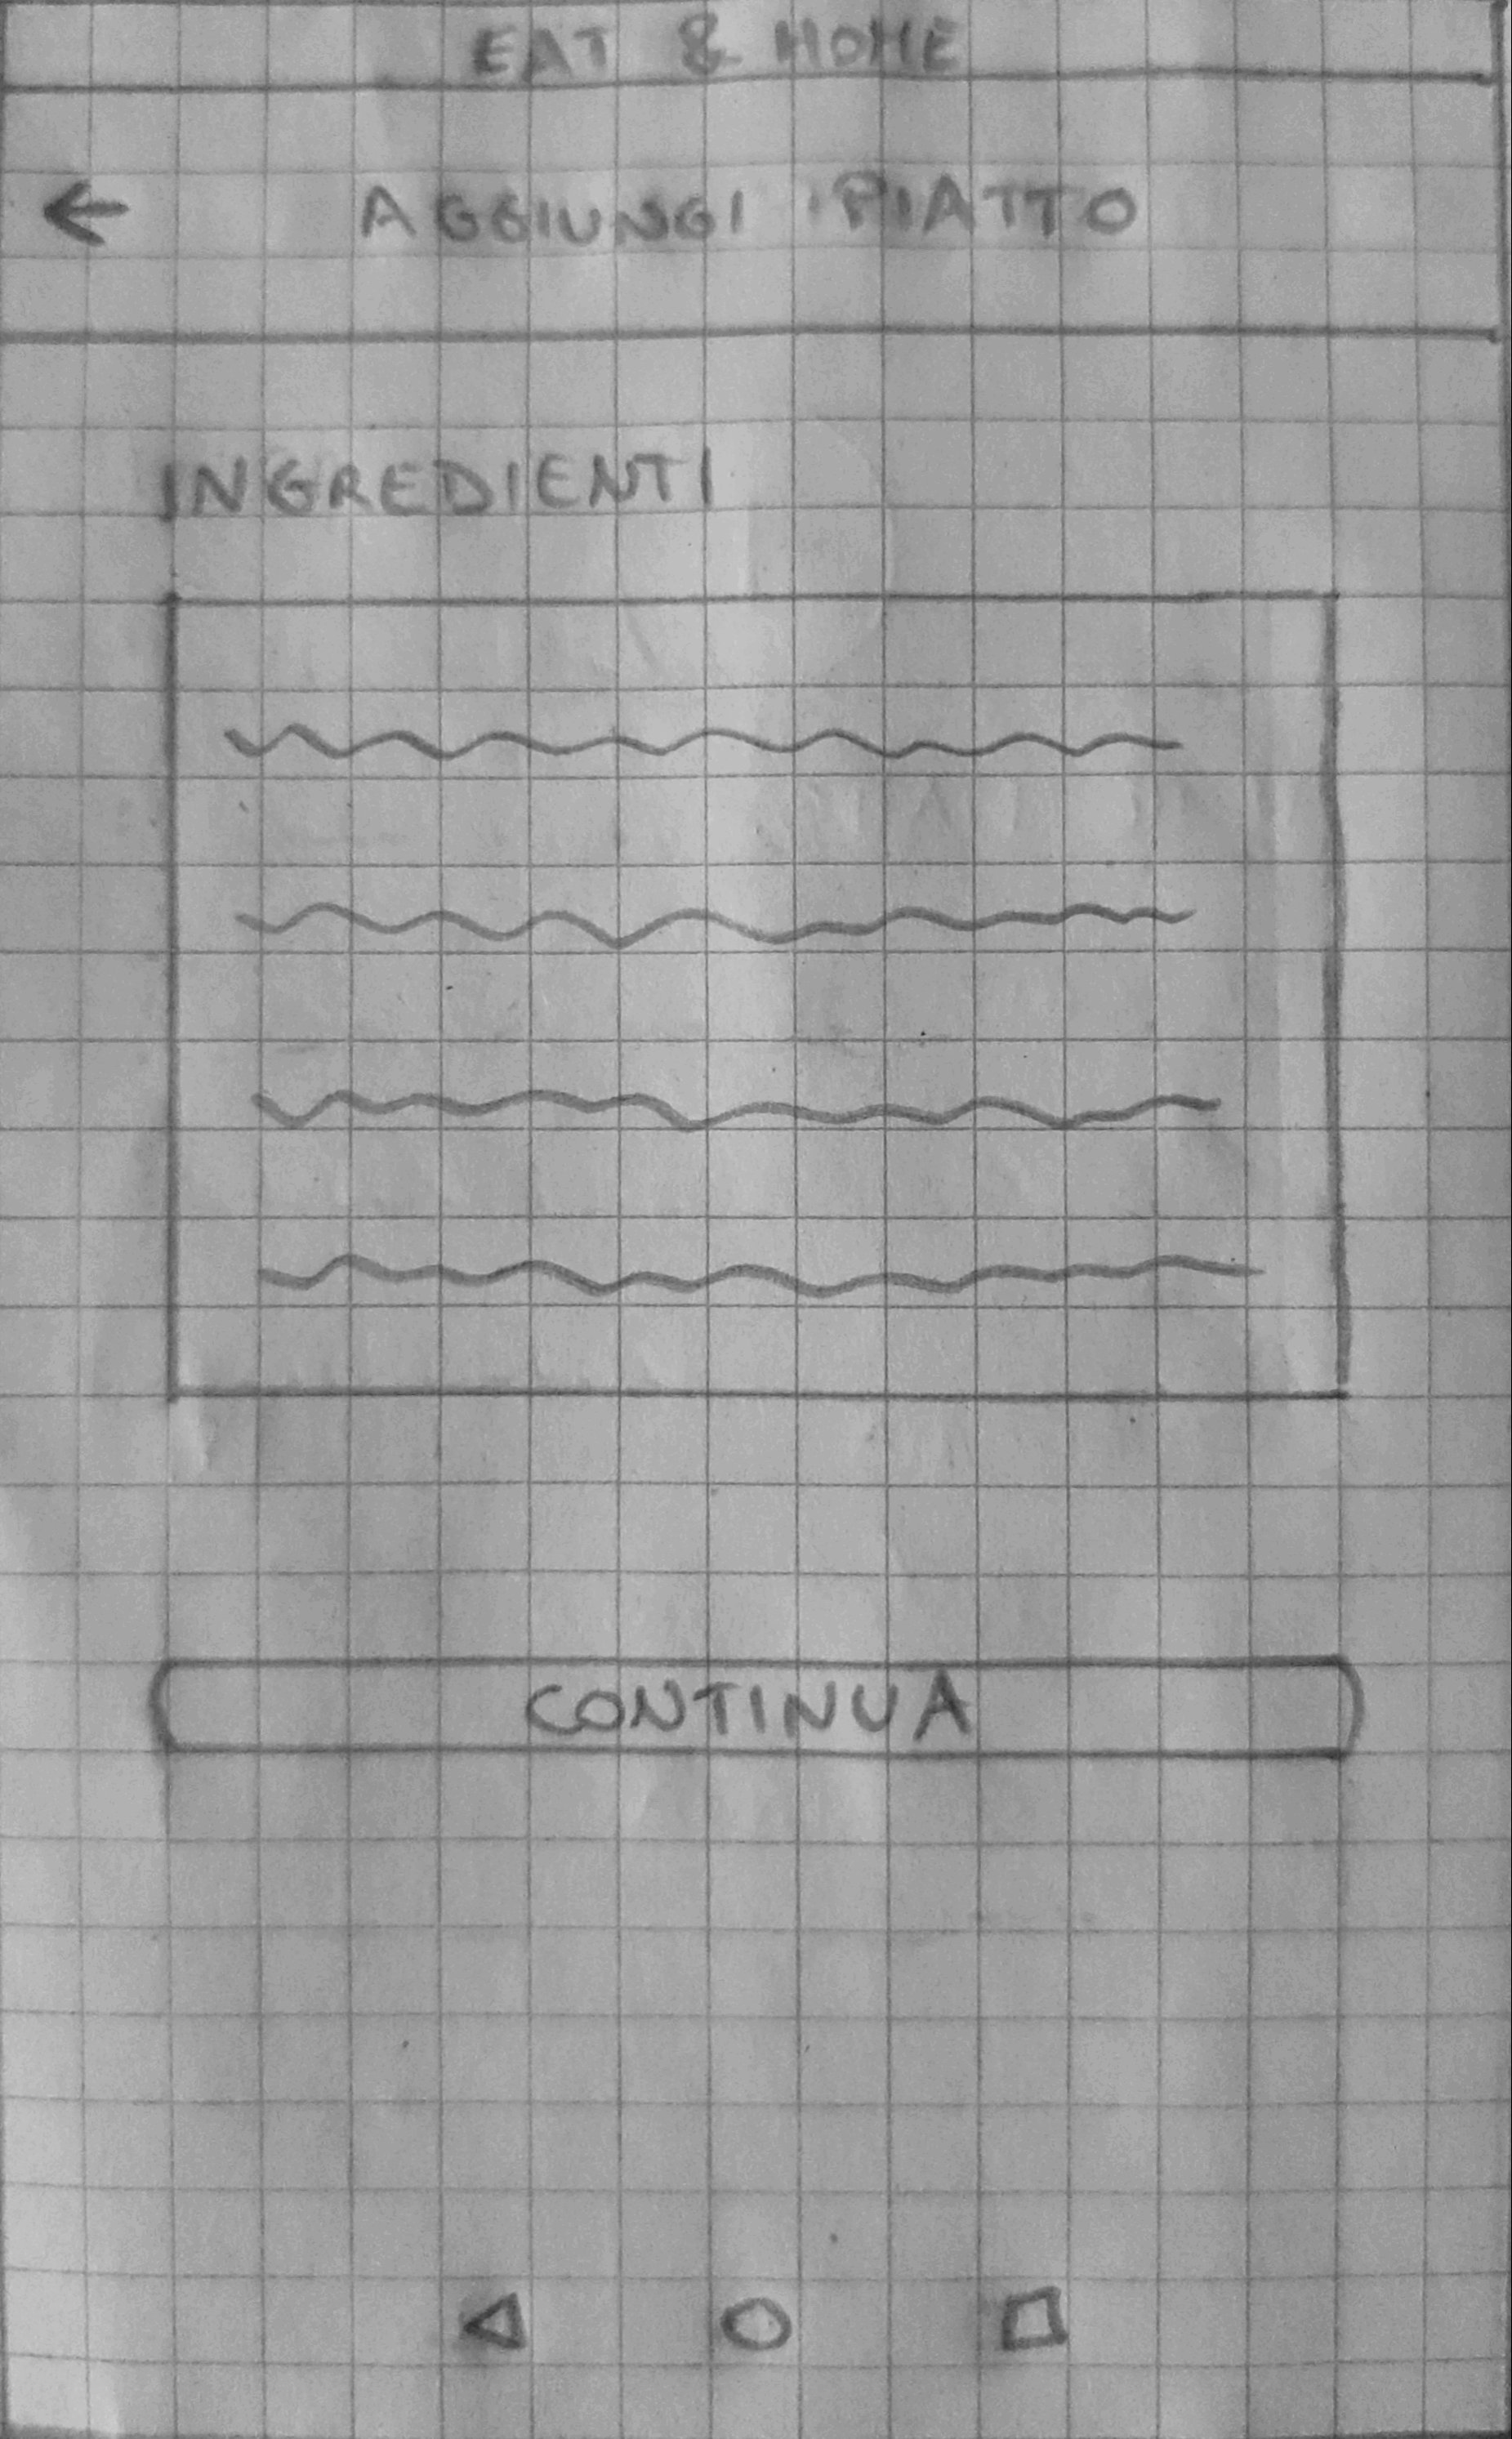 EAT & HOME
AGGIUNGI PIATTO
INGREDIENTI
CONTINUA